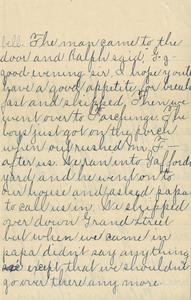 bell. The man came to the
door and Ralph said, "I g-
good evening sir, I hope you
have a good appetite for break
fast and skipped, Then we
went over to The
boys just got on the porch
when out rushed Mr. F—
after us. We ran into Gafford's
yard and he went on to
our house and asked papa
to call us in. We skipped
over down Grand Street
but when we came in
papa didn't say anything
except that we shouldn't
go over there any more.